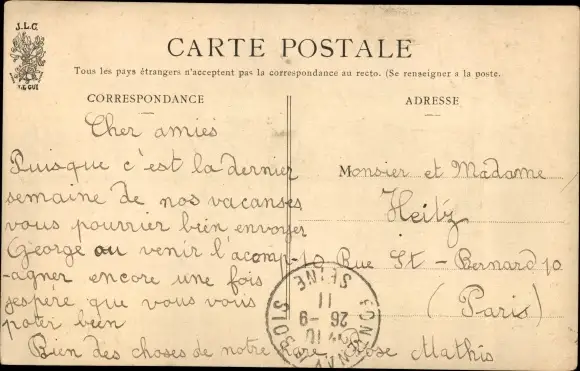 J.L.C.
LE GUI
CARTE POSTALE
Tous les pays étrangers n'acceptent pas la correspondance au recto. (Se renseigner a la poste.
CORRESPONDANCE
Cher amies
Puisque c'est la dernier
semaine de nos vacanses
vous pourrier bien envoyer
George ou venir l'acomp-
-agner encore une fois
jespère que vous vous
porter bien
Bien des choses de notre Rose Mathis
ADRESSE
Monsier et Madame
Heitz
10 Rue St - Bernard 10
(Paris)
SEINE
11
26 - 9